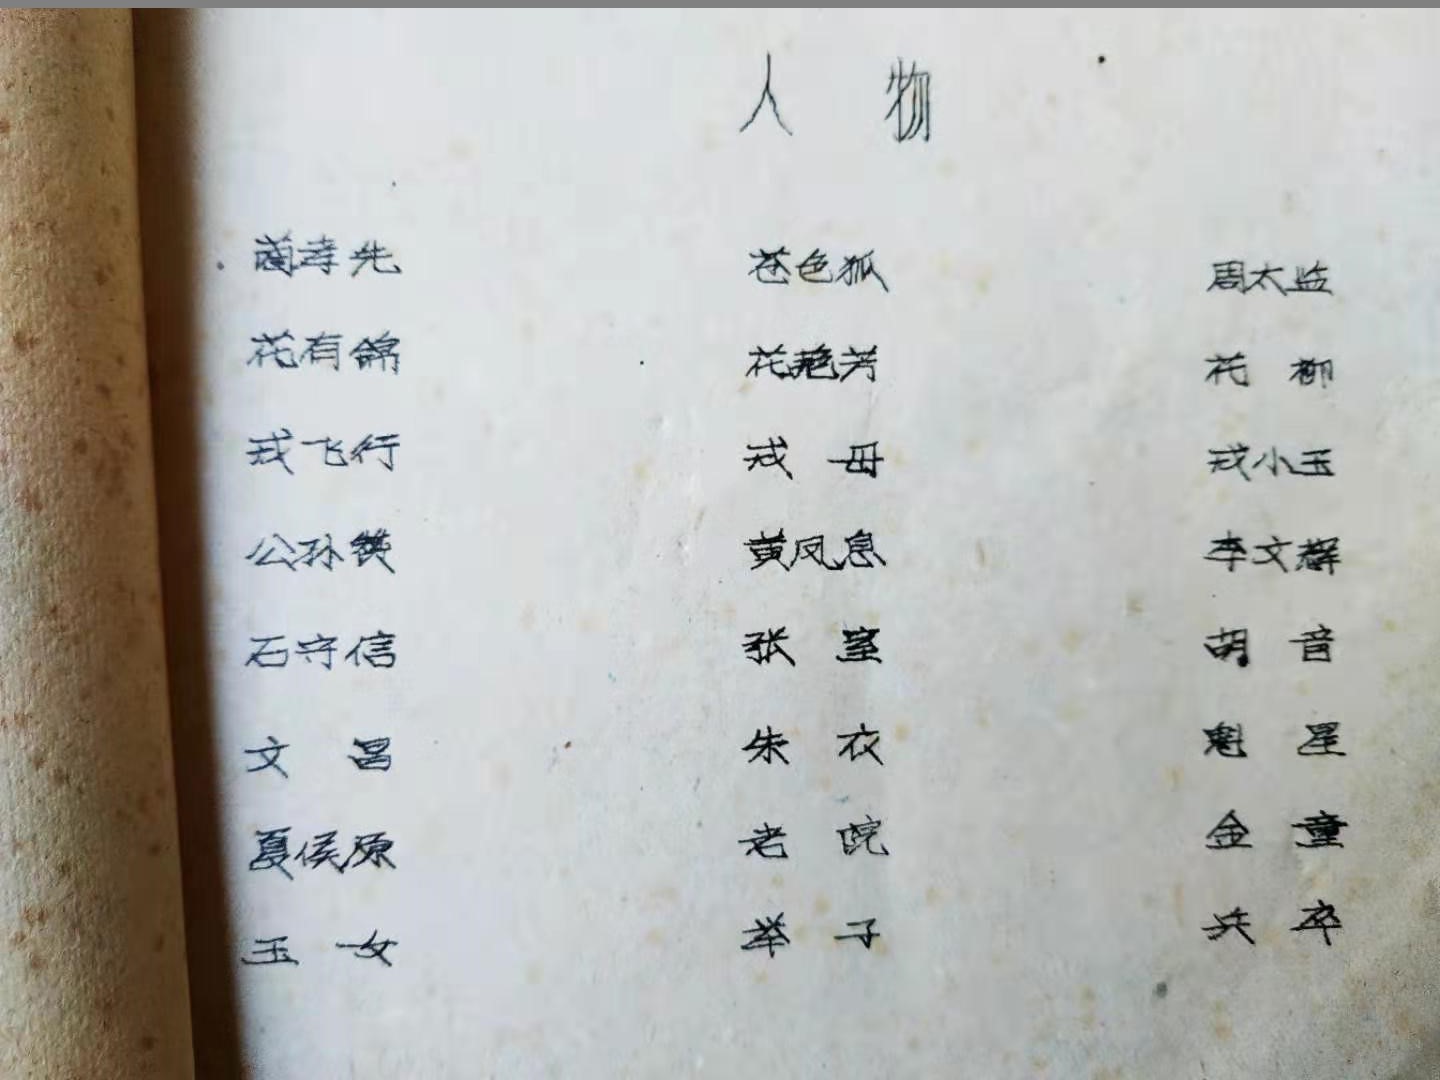 人 物
蔺孝先 苍色狐 周太监
花有锦 花艳芳 花 柳
戎飞行 戎 母 戎小玉
公孙赞 黄凤息 李文辉
石守信 张 室 胡 音
文 昌 朱 衣 魁 星
夏侯原 老 院 金 童
玉 女 举 子 兵 卒